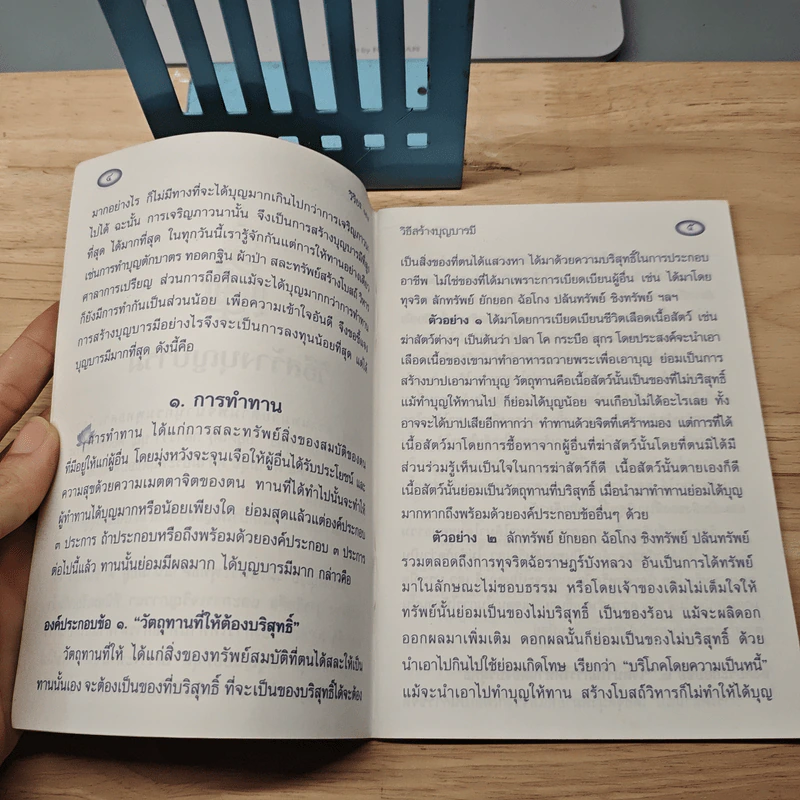 ๔
มากอย่างไร ก็ไม่มีทางที่จะได้บุญมากเกินไปกว่าการเจริญภาวนา
ไปได้ ฉะนั้น การเจริญภาวนานั้น จึงเป็นการสร้างบุญบารมีที่สูง
ที่สุด ได้มากที่สุด ในทุกวันนี้เรารู้จักกันแต่การให้ทานอย่างเดียว
เช่นการทำบุญตักบาตร ทอดกฐิน ผ้าป่า สละทรัพย์สร้างโบสถ์ วิหาร
ศาลาการเปรียญ ส่วนการถือศีลแม้จะได้บุญมากกว่าการทำทาน
ก็ยังมีการทำกันเป็นส่วนน้อย เพื่อความเข้าใจอันดี จึงขอชี้แจง
การสร้างบุญบารมีอย่างไรจึงจะเป็นการลงทุนน้อยที่สุด แต่ได้
บุญบารมีมากที่สุด ดังนี้คือ
๑. การทำทาน
การทำทาน ได้แก่การสละทรัพย์สิ่งของสมบัติของตน
ที่มีอยู่ให้แก่ผู้อื่น โดยมุ่งหวังจะจุนเจือให้ผู้อื่นได้รับประโยชน์ และ
ความสุขด้วยความเมตตาจิตของตน ทานที่ได้ทำไปนั้นจะทำให้
ผู้ทำทานได้บุญมากหรือน้อยเพียงใด ย่อมสุดแล้วแต่องค์ประกอบ
๓ ประการ ถ้าประกอบหรือถึงพร้อมด้วยองค์ประกอบ ๓ ประการ
ต่อไปนี้แล้ว ทานนั้นย่อมมีผลมาก ได้บุญบารมีมาก กล่าวคือ
องค์ประกอบข้อ ๑. “วัตถุทานที่ให้ต้องบริสุทธิ์”
วัตถุทานที่ให้ ได้แก่สิ่งของทรัพย์สมบัติที่ตนได้สละให้เป็น
ทานนั้นเอง จะต้องเป็นของที่บริสุทธิ์ ที่จะเป็นของบริสุทธิ์ได้จะต้อง
วิธีสร้างบุญบารมี
๕
เป็นสิ่งของที่ตนได้แสวงหา ได้มาด้วยความบริสุทธิ์ในการประกอบ
อาชีพ ไม่ใช่ของที่ได้มาเพราะการเบียดเบียนผู้อื่น เช่น ได้มาโดย
ทุจริต ลักทรัพย์ ยักยอก ฉ้อโกง ปล้นทรัพย์ ชิงทรัพย์ ฯลฯ
ตัวอย่าง ๑ ได้มาโดยการเบียดเบียนชีวิตเลือดเนื้อสัตว์ เช่น
ฆ่าสัตว์ต่างๆ เป็นต้นว่า ปลา โค กระบือ สุกร โดยประสงค์จะนำเอา
เลือดเนื้อของเขามาทำอาหารถวายพระเพื่อเอาบุญ ย่อมเป็นการ
สร้างบาปเอามาทำบุญ วัตถุทานคือเนื้อสัตว์นั้นเป็นของที่ไม่บริสุทธิ์
แม้ทำบุญให้ทานไป ก็ย่อมได้บุญน้อย จนเกือบไม่ได้อะไรเลย ทั้ง
อาจจะได้บาปเสียอีกหากว่า ทำทานด้วยจิตที่เศร้าหมอง แต่การที่ได้
เนื้อสัตว์มาโดยการซื้อหาจากผู้อื่นที่ฆ่าสัตว์นั้นโดยที่ตนมิได้มี
ส่วนร่วมรู้เห็นเป็นใจในการฆ่าสัตว์ก็ดี เนื้อสัตว์นั้นตายเองก็ดี
เนื้อสัตว์นั้นย่อมเป็นวัตถุทานที่บริสุทธิ์ เมื่อนำมาทำทานย่อมได้บุญ
มากหากถึงพร้อมด้วยองค์ประกอบข้ออื่นๆ ด้วย
ตัวอย่าง ๒ ลักทรัพย์ ยักยอก ฉ้อโกง ชิงทรัพย์ ปล้นทรัพย์
รวมตลอดถึงการทุจริตฉ้อราษฎร์บังหลวง อันเป็นการได้ทรัพย์
มาในลักษณะไม่ชอบธรรม หรือโดยเจ้าของเดิมไม่เต็มใจให้
ทรัพย์นั้นย่อมเป็นของไม่บริสุทธิ์ เป็นของร้อน แม้จะผลิดอก
ออกผลมาเพิ่มเติม ดอกผลนั้นก็ย่อมเป็นของไม่บริสุทธิ์ ด้วย
นำเอาไปกินไปใช้ย่อมเกิดโทษ เรียกว่า “บริโภคโดยความเป็นหนี้”
แม้จะนำเอาไปทำบุญให้ทาน สร้างโบสถ์วิหารก็ไม่ทำให้ได้บุญ